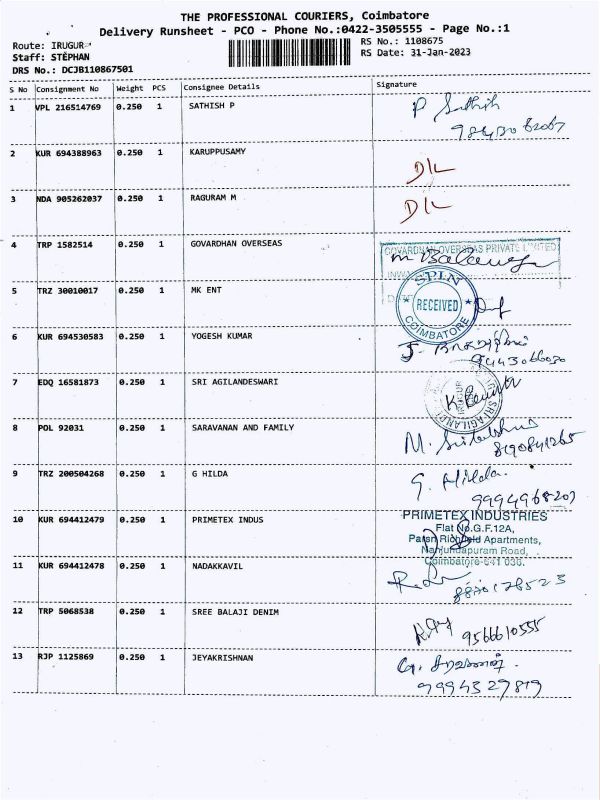 THE PROFESSIONAL COURIERS, Coimbatore
Delivery Runsheet - PCO - Phone No.:0422-3505555 - Page No.:1
Route: IRUGUR
RS No.: 1108675
Staff: STEPHAN
RS Date: 31-Jan-2023
DRS No.: DCJB110867501
S No Consignment No Weight PCS Consignee Details Signature
1 VPL 216514769 0.250 1 SATHISH P P Sathish
2 KUR 694388963 0.250 1 KARUPPUSAMY D/L
3 NDA 905262037 0.250 1 RAGURAM M D/L
4 TRP 1582514 0.250 1 GOVARDHAN OVERSEAS
GOVARDHAN OVERSEAS PRIVATE LIMITED
5 TRZ 30010017 0.250 1 MK ENT
SPIN
RECEIVED
COIMBATORE
6 KUR 694530583 0.250 1 YOGESH KUMAR
9443066030
7 EDQ 16581873 0.250 1 SRI AGILANDESWARI
IRUGUR
SRI AGILANDE
8 POL 92031 0.250 1 SARAVANAN AND FAMILY
8190841265
9 TRZ 200504268 0.250 1 G HILDA G. Hilda.
9994968207
10 KUR 694412479 0.250 1 PRIMETEX INDUS
PRIMETEX INDUSTRIES
Flat No.G.F.12A,
Apartments,
Nanjundapuram Road,
Coimbatore-641 036.
11 KUR 694412478 0.250 1 NADAKKAVIL
12 TRP 5068538 0.250 1 SREE BALAJI DENIM
9566610555
13 RJP 1125869 0.250 1 JEYAKRISHNAN
9994329819